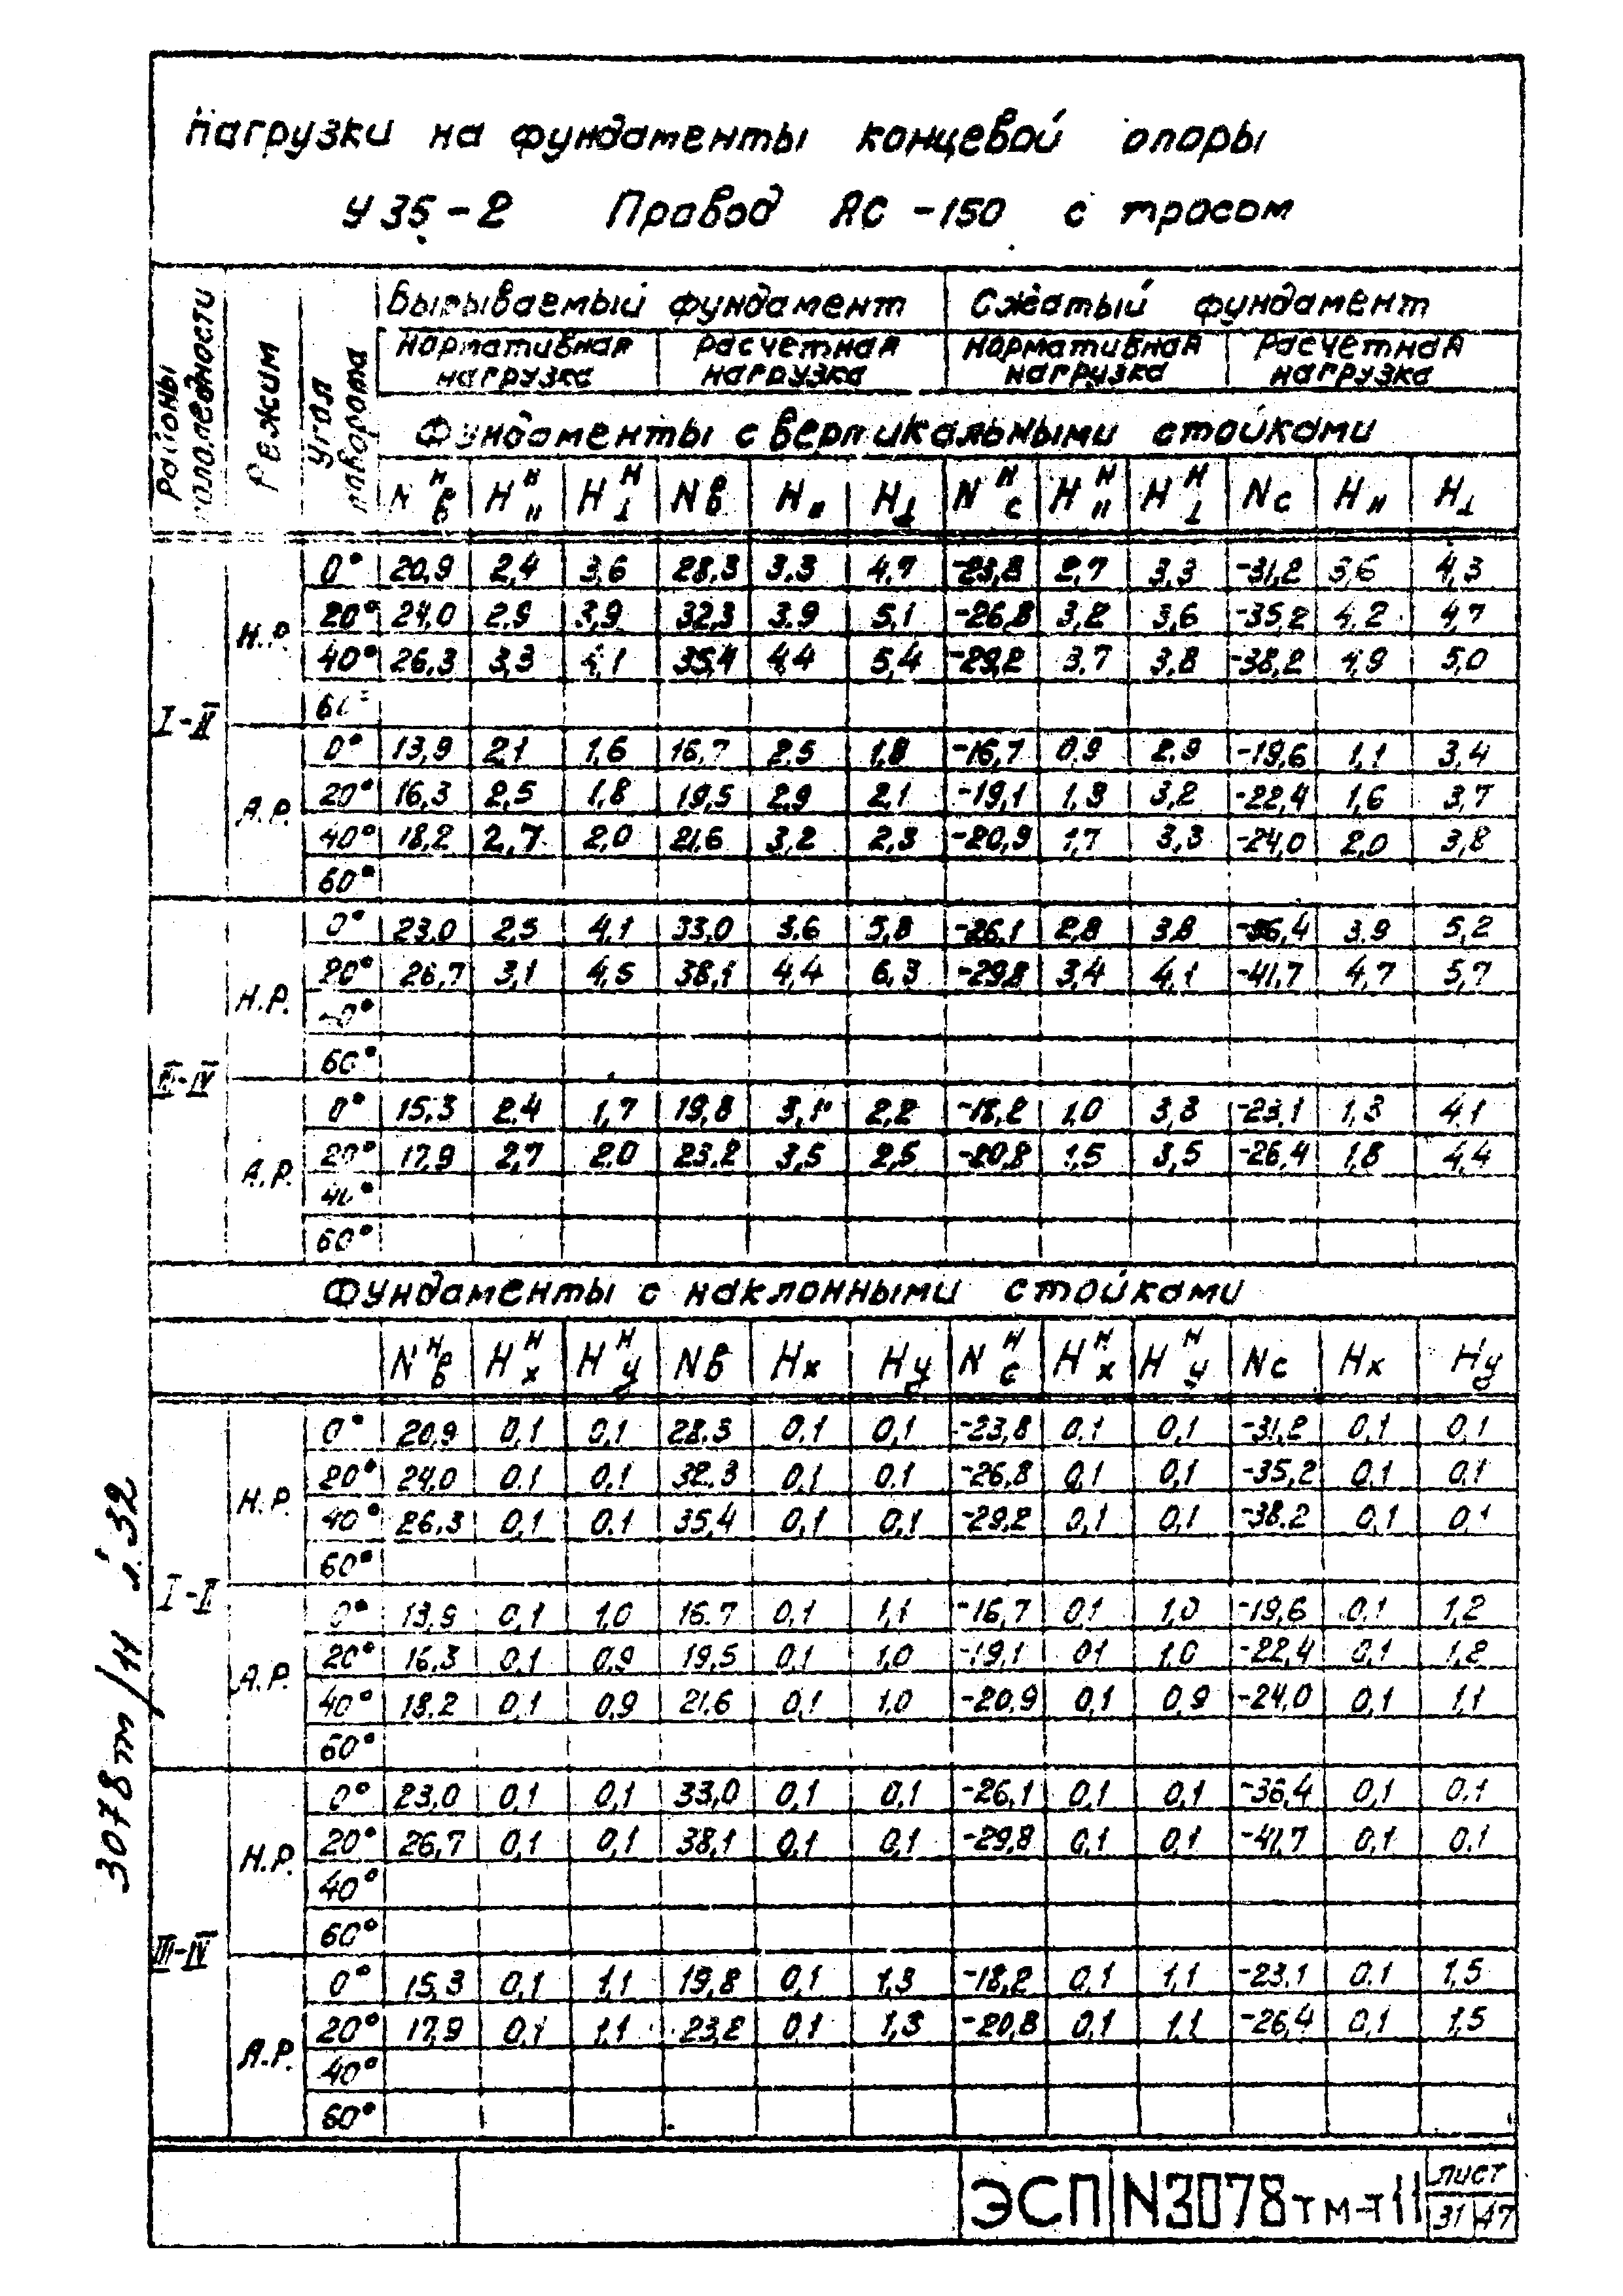 Нагрузки на фундаменты концевой опоры
У 35-2 Провод АС-150 с тросом
Районы гололедности
Режим
Угол поворота
Вырываемый фундамент Сжатый фундамент
Нормативная нагрузка Расчетная нагрузка Нормативная нагрузка Расчетная нагрузка
Фундаменты с вертикальными стойками
N н в H н II H н ⊥ Nв H II H⊥ N н с H н II H н ⊥ Nс H II H⊥
I-II
Н.Р.
0° 20,9 2,4 3,6 28,3 3,3 4,7 -23,8 2,7 3,3 -31,2 3,6 4,3
20° 24,0 2,9 3,9 32,3 3,9 5,1 -26,8 3,2 3,6 -35,2 4,2 4,7
40° 26,3 3,3 4,1 35,4 4,4 5,4 -29,2 3,7 3,8 -38,2 4,9 5,0
60°
А.Р.
0° 13,9 2,1 1,6 16,7 2,5 1,8 -16,7 0,9 2,9 -19,6 1,1 3,4
20° 16,3 2,5 1,8 19,5 2,9 2,1 -19,1 1,3 3,2 -22,4 1,6 3,7
40° 18,2 2,7 2,0 21,6 3,2 2,3 -20,9 1,7 3,3 -24,0 2,0 3,8
60°
III-IV
Н.Р.
0° 23,0 2,5 4,1 33,0 3,6 5,8 -26,1 2,8 3,8 -36,4 3,9 5,2
20° 26,7 3,1 4,5 38,1 4,4 6,3 -29,8 3,4 4,1 -41,7 4,7 5,7
40°
60°
А.Р.
0° 15,3 2,4 1,7 19,8 3,1 2,2 -18,2 1,0 3,3 -23,1 1,3 4,1
20° 17,9 2,7 2,0 23,2 3,5 2,5 -20,8 1,5 3,5 -26,4 1,8 4,4
40°
60°
Фундаменты с наклонными стойками
N н в H н х H н у Nв Hх Hу N н с H н х H н у Nс Hх Hу
I-II
Н.Р.
0° 20,9 0,1 0,1 28,3 0,1 0,1 -23,8 0,1 0,1 -31,2 0,1 0,1
20° 24,0 0,1 0,1 32,3 0,1 0,1 -26,8 0,1 0,1 -35,2 0,1 0,1
40° 26,3 0,1 0,1 35,4 0,1 0,1 -29,2 0,1 0,1 -38,2 0,1 0,1
60°
А.Р.
0° 13,9 0,1 1,0 16,7 0,1 1,1 -16,7 0,1 1,0 -19,6 0,1 1,2
20° 16,3 0,1 0,9 19,5 0,1 1,0 -19,1 0,1 1,0 -22,4 0,1 1,2
40° 18,2 0,1 0,9 21,6 0,1 1,0 -20,9 0,1 0,9 -24,0 0,1 1,1
60°
III-IV
Н.Р.
0° 23,0 0,1 0,1 33,0 0,1 0,1 -26,1 0,1 0,1 -36,4 0,1 0,1
20° 26,7 0,1 0,1 38,1 0,1 0,1 -29,8 0,1 0,1 -41,7 0,1 0,1
40°
60°
А.Р.
0° 15,3 0,1 1,1 19,8 0,1 1,3 -18,2 0,1 1,1 -23,1 0,1 1,5
20° 17,9 0,1 1,1 23,2 0,1 1,3 -20,8 0,1 1,1 -26,4 0,1 1,5
40°
60°
3078тм/11 л.32
ЭСП N3078тм-т11 лист
31 47